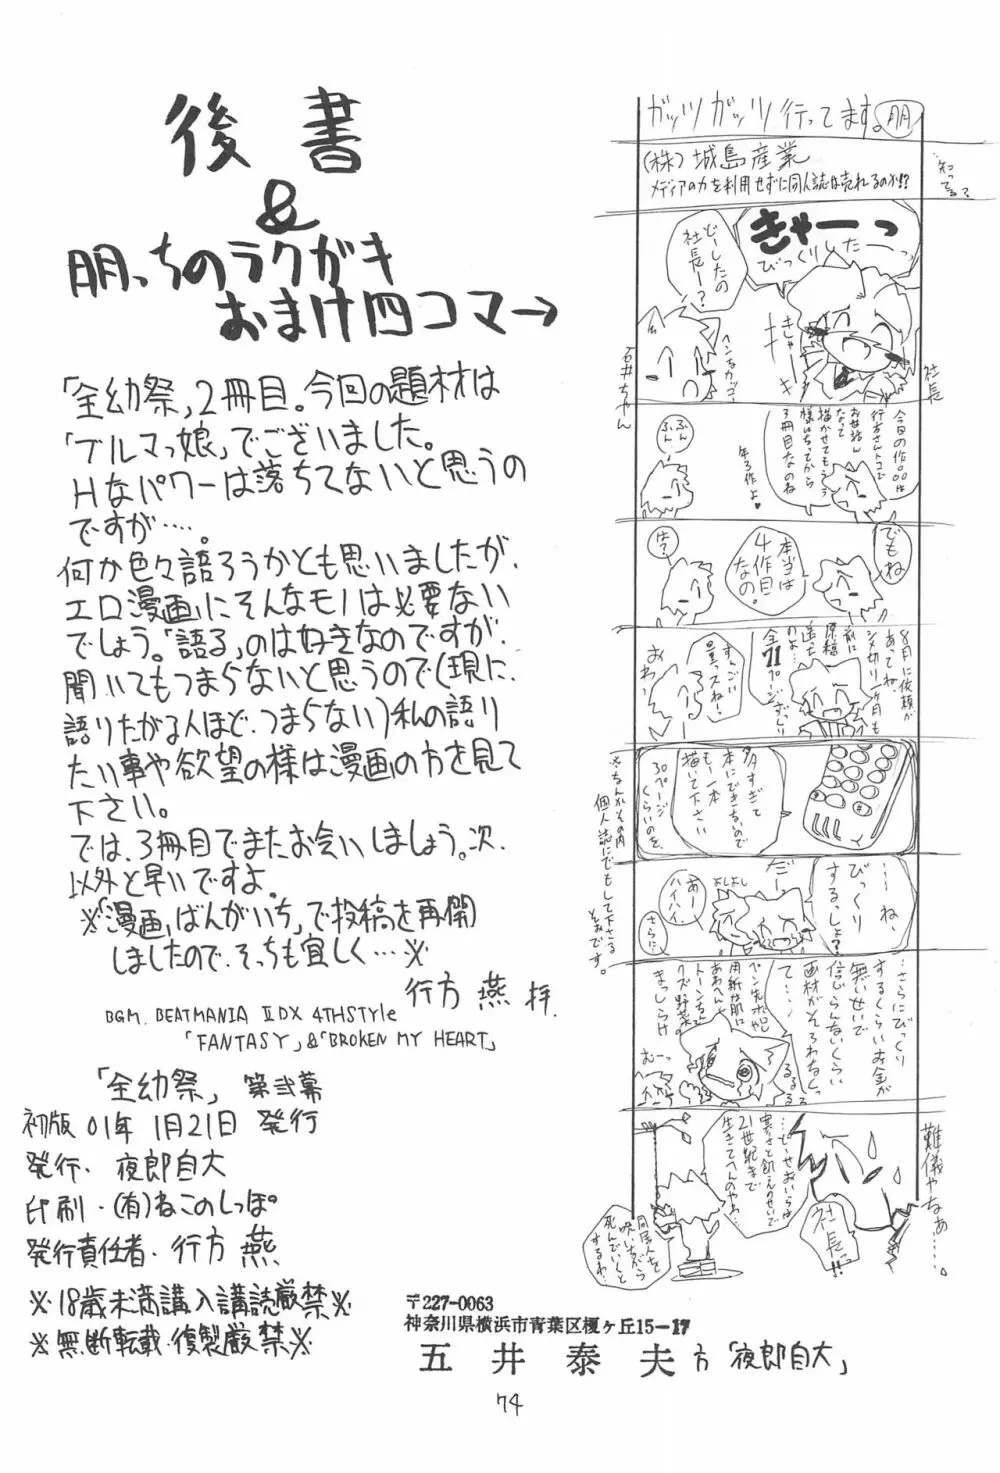 後書
&
朋っちのラクガキ
おまけ四コマ→
「全幼祭」2冊目。今回の題材は
「ブルマっ娘」でございました。
Hなパワーは落ちてないと思うの
ですが‥‥。
何か色々語ろうかとも思いましたが、
エロ漫画にそんなモノは必要ない
でしょう。「語る」のは好きなのですが、
聞いてもつまらないと思うので(現に、
語りたがる人ほど、つまらない)私の語り
たい事や欲望の様は漫画の方を見て
下さい。
では、3冊目でまたお会いしましょう。次、
以外と早いですよ。
※「漫画ばんがいち」で投稿を再開
しましたので、そっちも宜しく…※
行方 燕 拝.
BGM. BEATMANIA ⅡDX 4THStyle
「FANTASY」&「BROKEN MY HEART」
「全幼祭」 第弐幕
初版 01年 1月21日 発行
発行・夜郎自大
印刷・(有)ねこのしっぽ
発行責任者・行方 燕
※18歳未満購入講読厳禁※
※無断転載・複製厳禁※
ガッツガッツ行ってます。朋
(株)城島産業
メディアの力を利用せずに同人誌は売れるのか!?
知ってる?
きゃーーっ
びっくりしたーーっ
きしゃーーき
どーしたの
社長ー?
ヘンなカッコ
社長
石井ちゃん
今日の作品は
行方さんトコで
お世話ん
なって
描かせてもらう
様になってから
3冊目なのね
年3作よ♥
ふんふん
でもね
本当は
4作目
なの。
は?
8月に依頼が
あってね、
シメ切り一ヶ月も
前に
原稿
送った
のよ…
全71ページずっしり
すんごい
量っスねー
おわっ
多すぎて
本にできないので
もー一本
描いて下さい
30ページ
くらいのを
※なんかその内
個人誌にでもして下さる
そおです。
…ね、
びっくり
するっしょ?
だー
よしよし
あー
ハイハイ
さらに
…さらにびっくり
するくらいお金が
無いせいで
信じらんないくらい
画材がそろわなくっ
て‥‥
るるるる
むーっ
難儀やなぁ……
社長っ!!
…どーせおいらは
寒さと飢えのせいで
21世紀まで
生きてへんのやわ…
同居人を
呪いながら
死んでいくと
するわ…
〒227-0063
神奈川県横浜市青葉区榎ヶ丘15-17
五井泰夫方「夜郎自大」
74